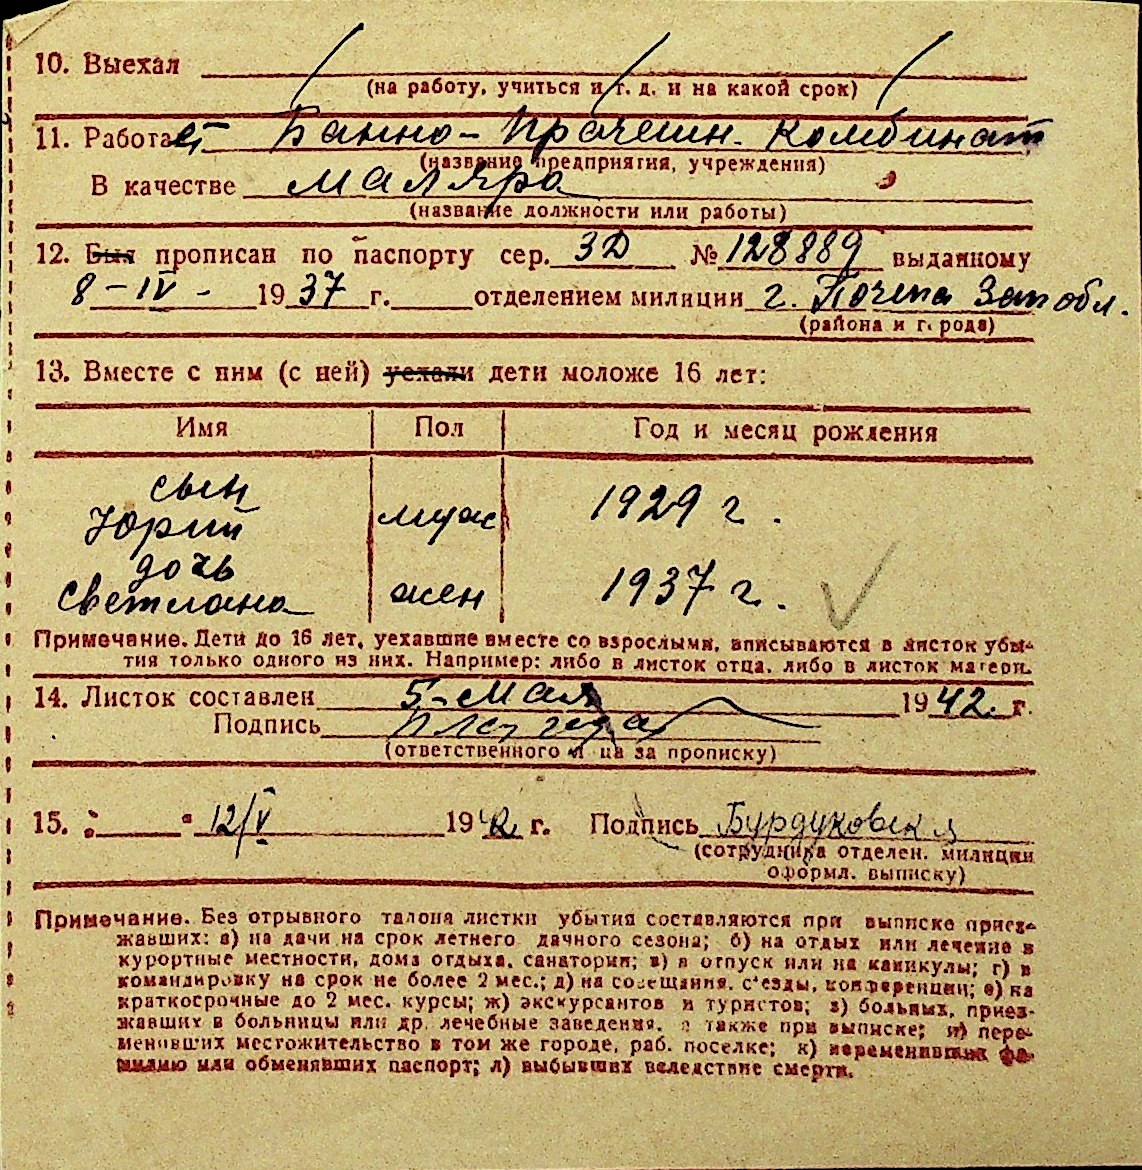 10. Выехал
(на работу, учиться и т. д. и на какой срок)
11. Работает Банно-Прачешн. Комбинат
(название предприятия, учреждения)
В качестве маляра
(название должности или работы)
12. Был прописан по паспорту сер. ЗД № 128889 выданному
8-IV- 1937 г. отделением милиции г. Почепа Зап обл.
(района и города)
13. Вместе с ним (с ней) уехали дети моложе 16 лет:
Имя Пол Год и месяц рождения
сын
Юрий муж 1929 г.
дочь
Светлана жен 1937 г.
Примечание. Дети до 16 лет, уехавшие вместе со взрослыми, вписываются в листок убы-
тия только одного из них. Например: либо в листок отца, либо в листок матери.
14. Листок составлен 5-мая 1942. г.
Подпись
(ответственного лица за прописку)
15. " " 12/V 1942 г. Подпись Бурдуковская
(сотрудника отделен. милиции
оформл. выписку)
Примечание. Без отрывного талона листки убытия составляются при выписке приез-
жавших: а) на дачи на срок летнего дачного сезона; б) на отдых или лечение в
курортные местности, дома отдыха, санатории; в) в отпуск или на каникулы; г) в
командировку на срок не более 2 мес.; д) на совещания, съезды, конференции; е) на
краткосрочные до 2 мес. курсы; ж) экскурсантов и туристов; з) больных, приез-
жавших в больницы или др. лечебные заведения, а также при выписке; и) пере-
менивших местожительство в том же городе, раб. поселке; к) переменивших фа-
милию или обменявших паспорт; л) выбывших вследствие смерти.